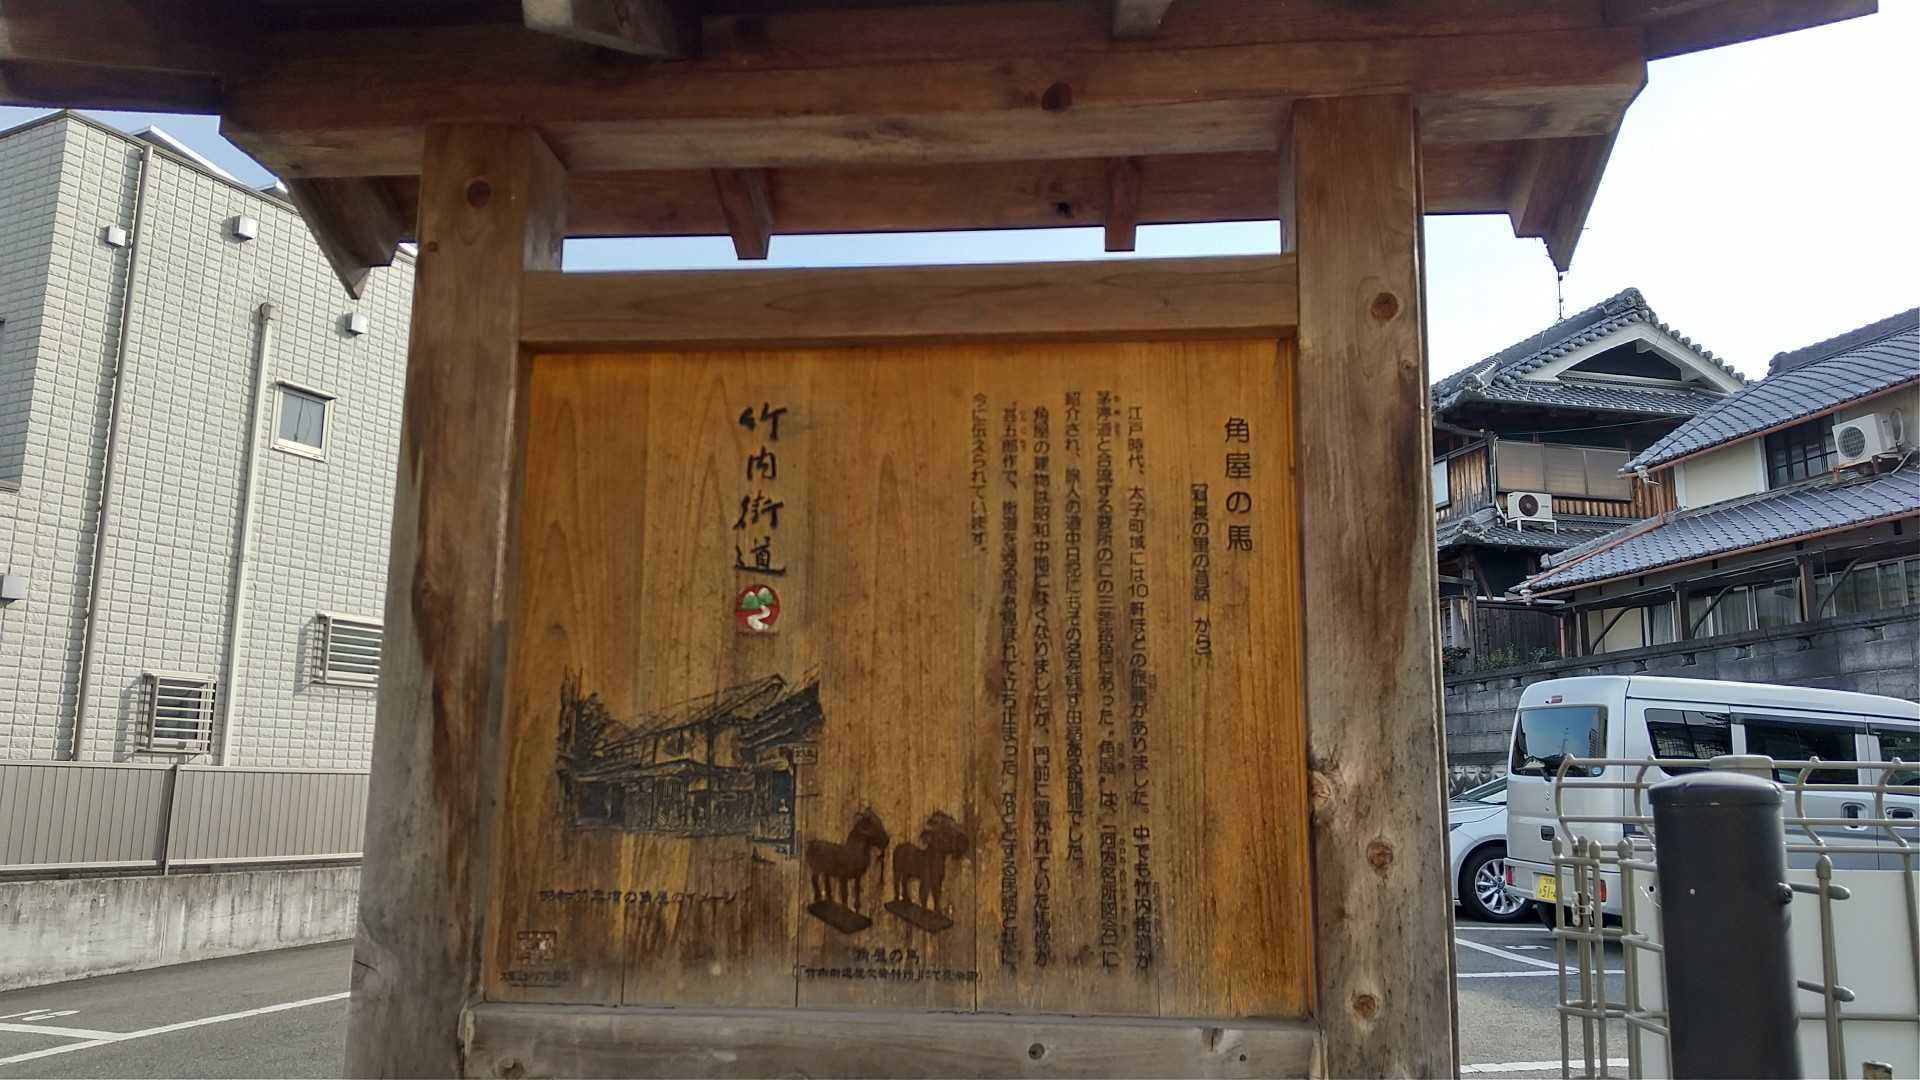 角屋の馬
「科長の里の昔話」から
江戸時代、太子町域には10軒ほどの旅籠がありました。中でも竹内街道が
茅渟道と合流する要所のこの三差路角にあった"角屋"は、「河内名所図会」に
紹介され、旅人の道中日記にもその名を残す由緒ある旅籠でした。
角屋の建物は昭和中期になくなりましたが、門前に置かれていた馬が
"甚五郎作で、街道を通る馬も見ほれて立ち止まった"などとする民話と共に、
今に伝えられています。
竹内街道
昭和30年頃の角屋のイメージ
角屋の馬
(「竹内街道歴史資料館」にて展示中)